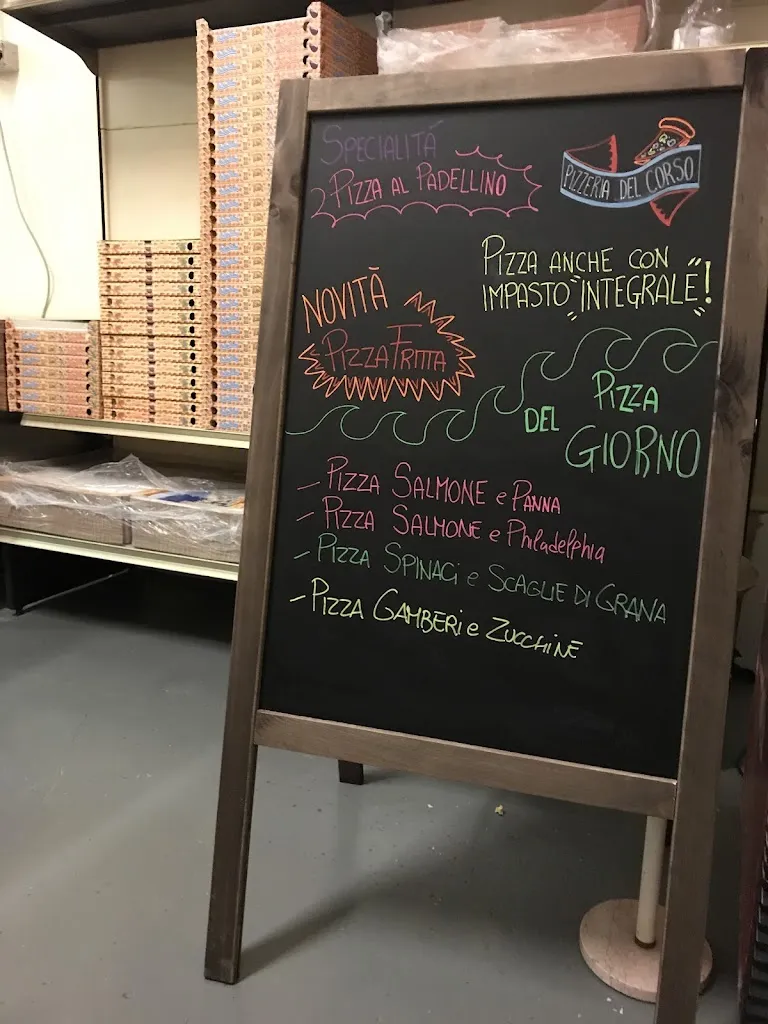 SPECIALITÁ
PIZZA AL PADELLINO
PIZZERIA DEL CORSO
PIZZA ANCHE CON
IMPASTO "INTEGRALE"!
NOVITÀ
PIZZA FRITTA
PIZZA
DEL
GIORNO
- PIZZA SALMONE e PANNA
- PIZZA SALMONE e Philadelphia
- PIZZA SPINACi e SCAGLIE Di GRANA
- PIZZA GAMBERi e ZUCCHiNE